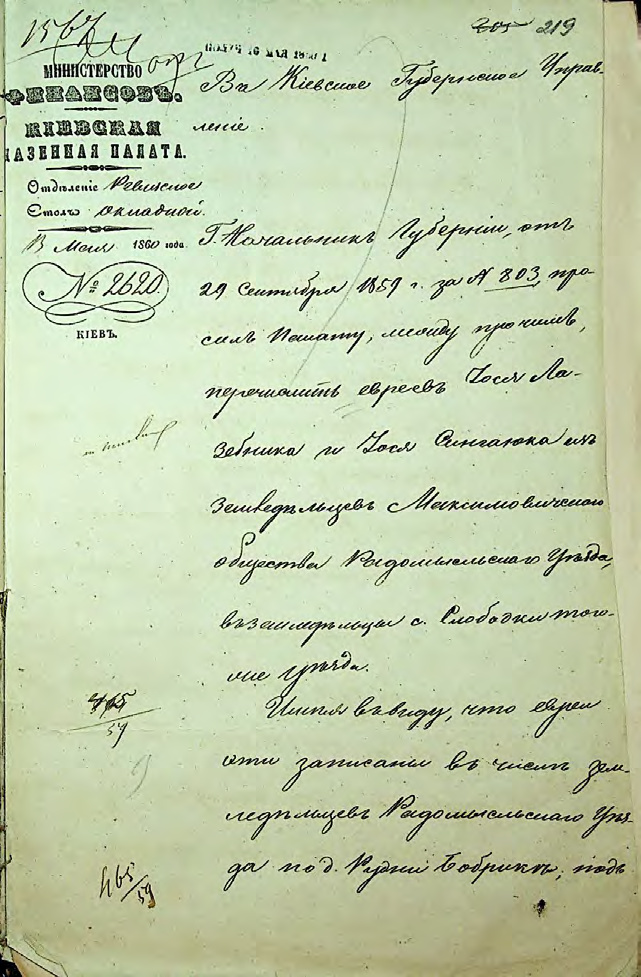 1567
219
МИНИСТЕРСТВО
ФИНАНСОВЪ.
КІЕВСКАЯ
КАЗЕННАЯ ПАЛАТА.
Отдѣленіе Ревизское
Столъ окладной.
13 Мая 1860 года
№ 2620
КІЕВЪ.
Въ Кіевское Губернское Управ-
леніе.
Г. Начальникъ Губерніи, отъ
29 Сентября 1859 г. за № 803, про-
силъ Палату, между прочимъ,
перечислить евреевъ Іося Ла-
зебника и Іося Сингаюка изъ
земледѣльцевъ Максимовичскаго
общества Радомысльскаго Уѣзда,
въ земледѣльцы с. Слободки того-
же уѣзда.
Имѣя въ виду, что евреи
эти записаны въ числѣ зем-
ледѣльцевъ Радомысльскаго Уѣз-
да по д. Рудни Бобрикъ, подъ
59
465/59